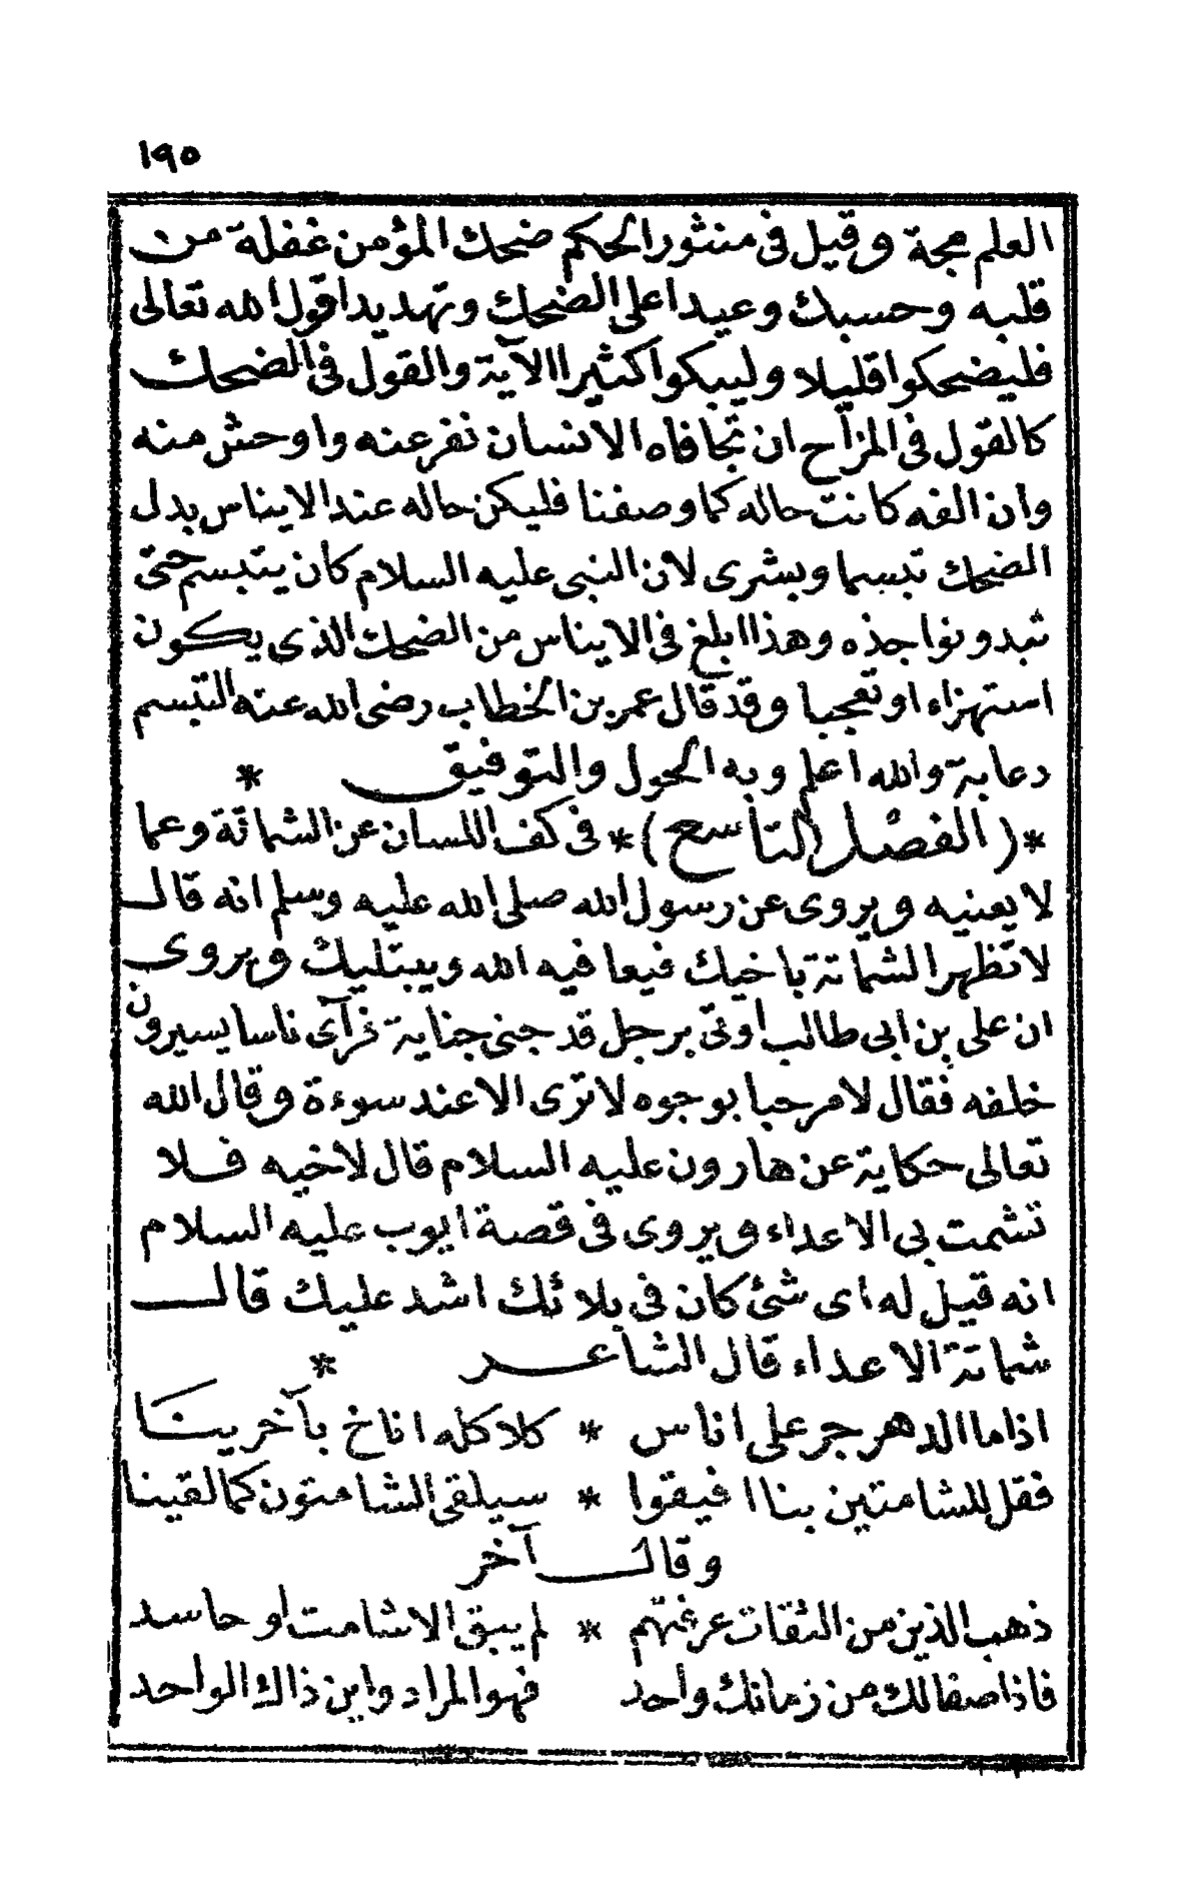 ١٩٥
العلم مجة وقيل فى منثور الحكم ضحك المؤمن غفلة من
قلبه وحسبك وعيدا على الضحك وتهديدا قول الله تعالى
فليضحكوا قليلا وليبكوا كثيرا الآية والقول فى الضحك
كالقول فى المزاح ان تجافاه الانسان نفر عنه واوحش منه
وان الفه كانت حاله كما وصفنا فليكن حاله عند الايناس بدل
الضحك تبسما وبشرى لان النبى عليه السلام كان يتبسم حتى
تبدو نواجذه وهذا ابلغ فى الايناس من الضحك الذى يكون
استهزاء او تعجبا وقد قال عمر بن الخطاب رضى الله عنه التبسم
دعابة والله اعلم وبه الحول والتوفيق *
*(الفصل التاسع)* فى كف اللسان عن الشماتة وعما
لا يعنيه ويروى عن رسول الله صلى الله عليه وسلم انه قال
لا تظهر الشماتة باخيك فيعافيه الله ويبتليك ويروى
ان على بن ابى طالب اوتى برجل قد جنى جناية فرآى ناسا يسيرون
خلفه فقال لا مرحبا بوجوه لا ترى الا عند سوءة وقال الله
تعالى حكاية عن هارون عليه السلام قال لاخيه فلا
تشمت بى الاعداء ويروى فى قصة ايوب عليه السلام
انه قيل له اى شئ كان فى بلائك اشد عليك قال
شماتة الاعداء قال الشاعر *
اذا ما الدهر جر على اناس * كلا كله اناخ بآخرينا
فقل للشامتين بنا افيقوا * سيلقى الشامتون كما لقينا
وقال آخر
ذهب الذين من الثقات عرفتهم * لم يبق الا شامت او حاسد
فاذا صفا لك من زمانك واحد فهو المراد واين ذاك الواحد